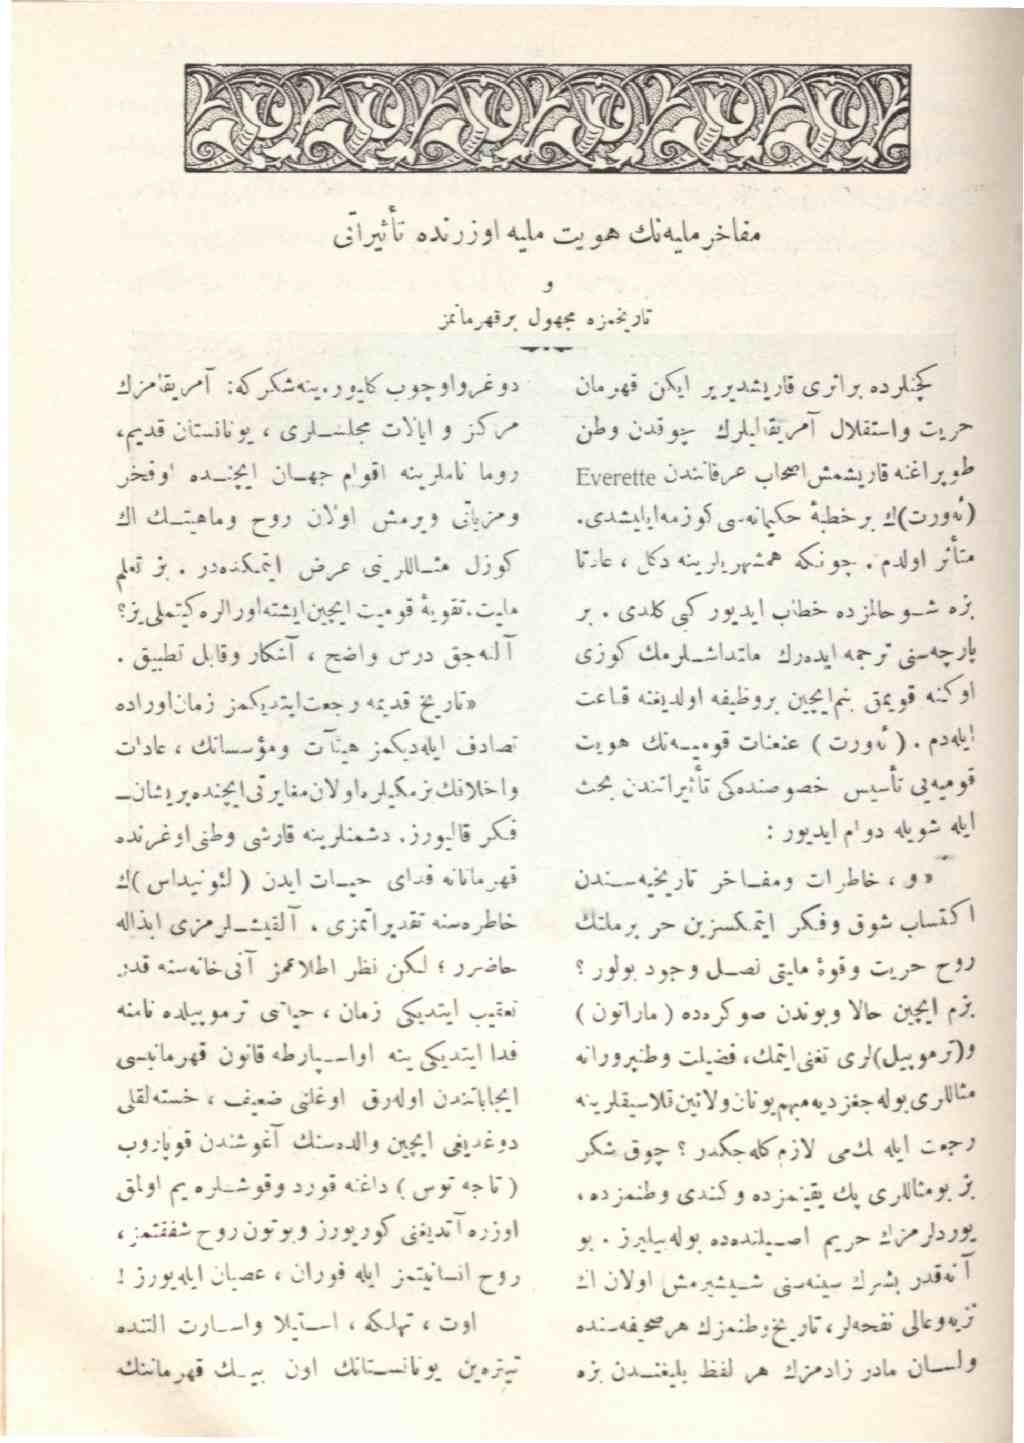 مفاخر مليه‌نك هويت مليه اوزرنده تأثيراتى
و
تاريخمزه مجهول بر قهرمانمز
كچنلرده بر اثرى قاريشديرير ايكن قهرمان
حريت واستقلال آمريقاليلرك چوقدن وطن
طوپراغنه قاريشمش اصحاب عرفانندن Everette
(ئه‌ورت)ك بر خطبۀ حكيمانه‌سى كوزمه ايليشدى.
متأثر اولدم . چونكه همشهريلرينه دكل ، عادتا
بزه شو حالمزده خطاب ايديور كبى كلدى . بر
پارچه‌سنى ترجمه ايده‌رك ملتداشلرمك كوزى
اوكنه قويمق بنم ايچين بر وظيفه اولديغنه قناعت
ايله‌دم . ( ئه‌ورت ) عنعنات قوميه‌نك هويت
قوميه‌يى تأسيس خصوصنده‌كى تأثيراتندن بحث
ايله شويله دوام ايديور :
«و ، خاطرات ومفاخر تاريخيه‌سندن
اكتساب شوق وفكر ايتمكسزين حر بر ملتك
روح حريت وقوۀ مليتى نصل وجود بولور ؟
بزم ايچين حالا وبوندن صوكره‌ده ( ماراتون )
و(ترموپيل)لرى تغنى ايتمك، فضيلت وطنپرورانه
مثاللرى بوله‌جغز ديه مبهم يونان ولاتين قلاسيقلرينه
رجعت ايله‌مك‌مى لازم كله‌جكدر ؟ چوق شكر
بز بو مثاللرى پك يقينمزده وكندى وطنمزده ،
يوردلرمزك حريم اصيلنده‌ده بوله‌بيليرز . بو
آنه‌قدر بشرك سينه‌سنى شيشيرمش اولان اك
نزيه وعالى نفحه‌لر، تاريخ وطنمزك هر صحيفه‌سنده
ولسان مادر زادمزك هر لفظ بليغندن بزه
دوغرو اوچوب كليور. ينه شكر كه: آمريقامزك
مركز و ايالات مجلسلرى ، يونانستان قديم،
روما ناملرينه اقوام جهان ايچنده اوفخر
ومزياتى ويرمش اولان روح وماهيتك اك
كوزل مثاللرينى عرض ايتمكده‌در . بز تعلم
مليت، تقويۀ قوميت ايچين ايشته اورالره كيتملى‌يز؟
آلنه‌جق درس واضح ، آشكار وقابل تطبيق .
«تاريخ قديمه رجعت ايتديكمز زمان اوراده
تصادف ايله‌ديكمز هيئآت ومؤسساتك ، عادات
واخلاقك بزمكيلره اولان مغايرتى ايچنده پريشان
فكر قاليورز. دشمنلرينه قارشى وطنى اوغرنده
قهرمانانه فداى حيات ايدن ( لئونيداس )ك
خاطره‌سنه تقديراتمزى . آلقيشلرمزى ابذاله
حاضرز ؛ لكن نظر اطلاعمز آنى خانه‌سنه قدر
تعقيب ايتديكى زمان ، حياتنى ترموپيلده نامنه
فدا ايتديكى ينه او اسپارطه قانون قهرمانيسى
ايجاباتندن اوله‌رق اوغلنى ضعيف ، خسته‌لقلى
دوغديغى ايچين والده‌سنك آغوشندن قوپاروب
( تاجه‌توس ) داغنه قورد وقوشلره يم اولمق
اوزره آتديغنى كوريورز وبوتون روح شفقتمز ،
روح انسانيتمز ايله فوران ، عصيان ايله‌يورز !
اوت ، تهلكه ، استيلا واسارت التنده
تيتره‌ين يونانستانك اون بيك قهرماننك